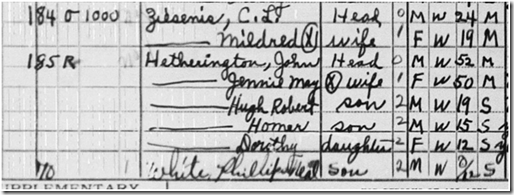 184 O 1000 Ziesenis, C. L. Head 0 M W 24 M
—— Mildred X wife 1 F W 19 M
185 R Hetherington, John Head 0 M W 52 M
—— Jennie May X wife 1 F W 50 M
—— Hugh Robert son 2 M W 19 S
—— Homer son 2 M W 15 S
—— Dorothy daughter 2 F W 12 S
70 White, Phillip Neal son 2 M W 0/12 S
SUPPLEMENTARY